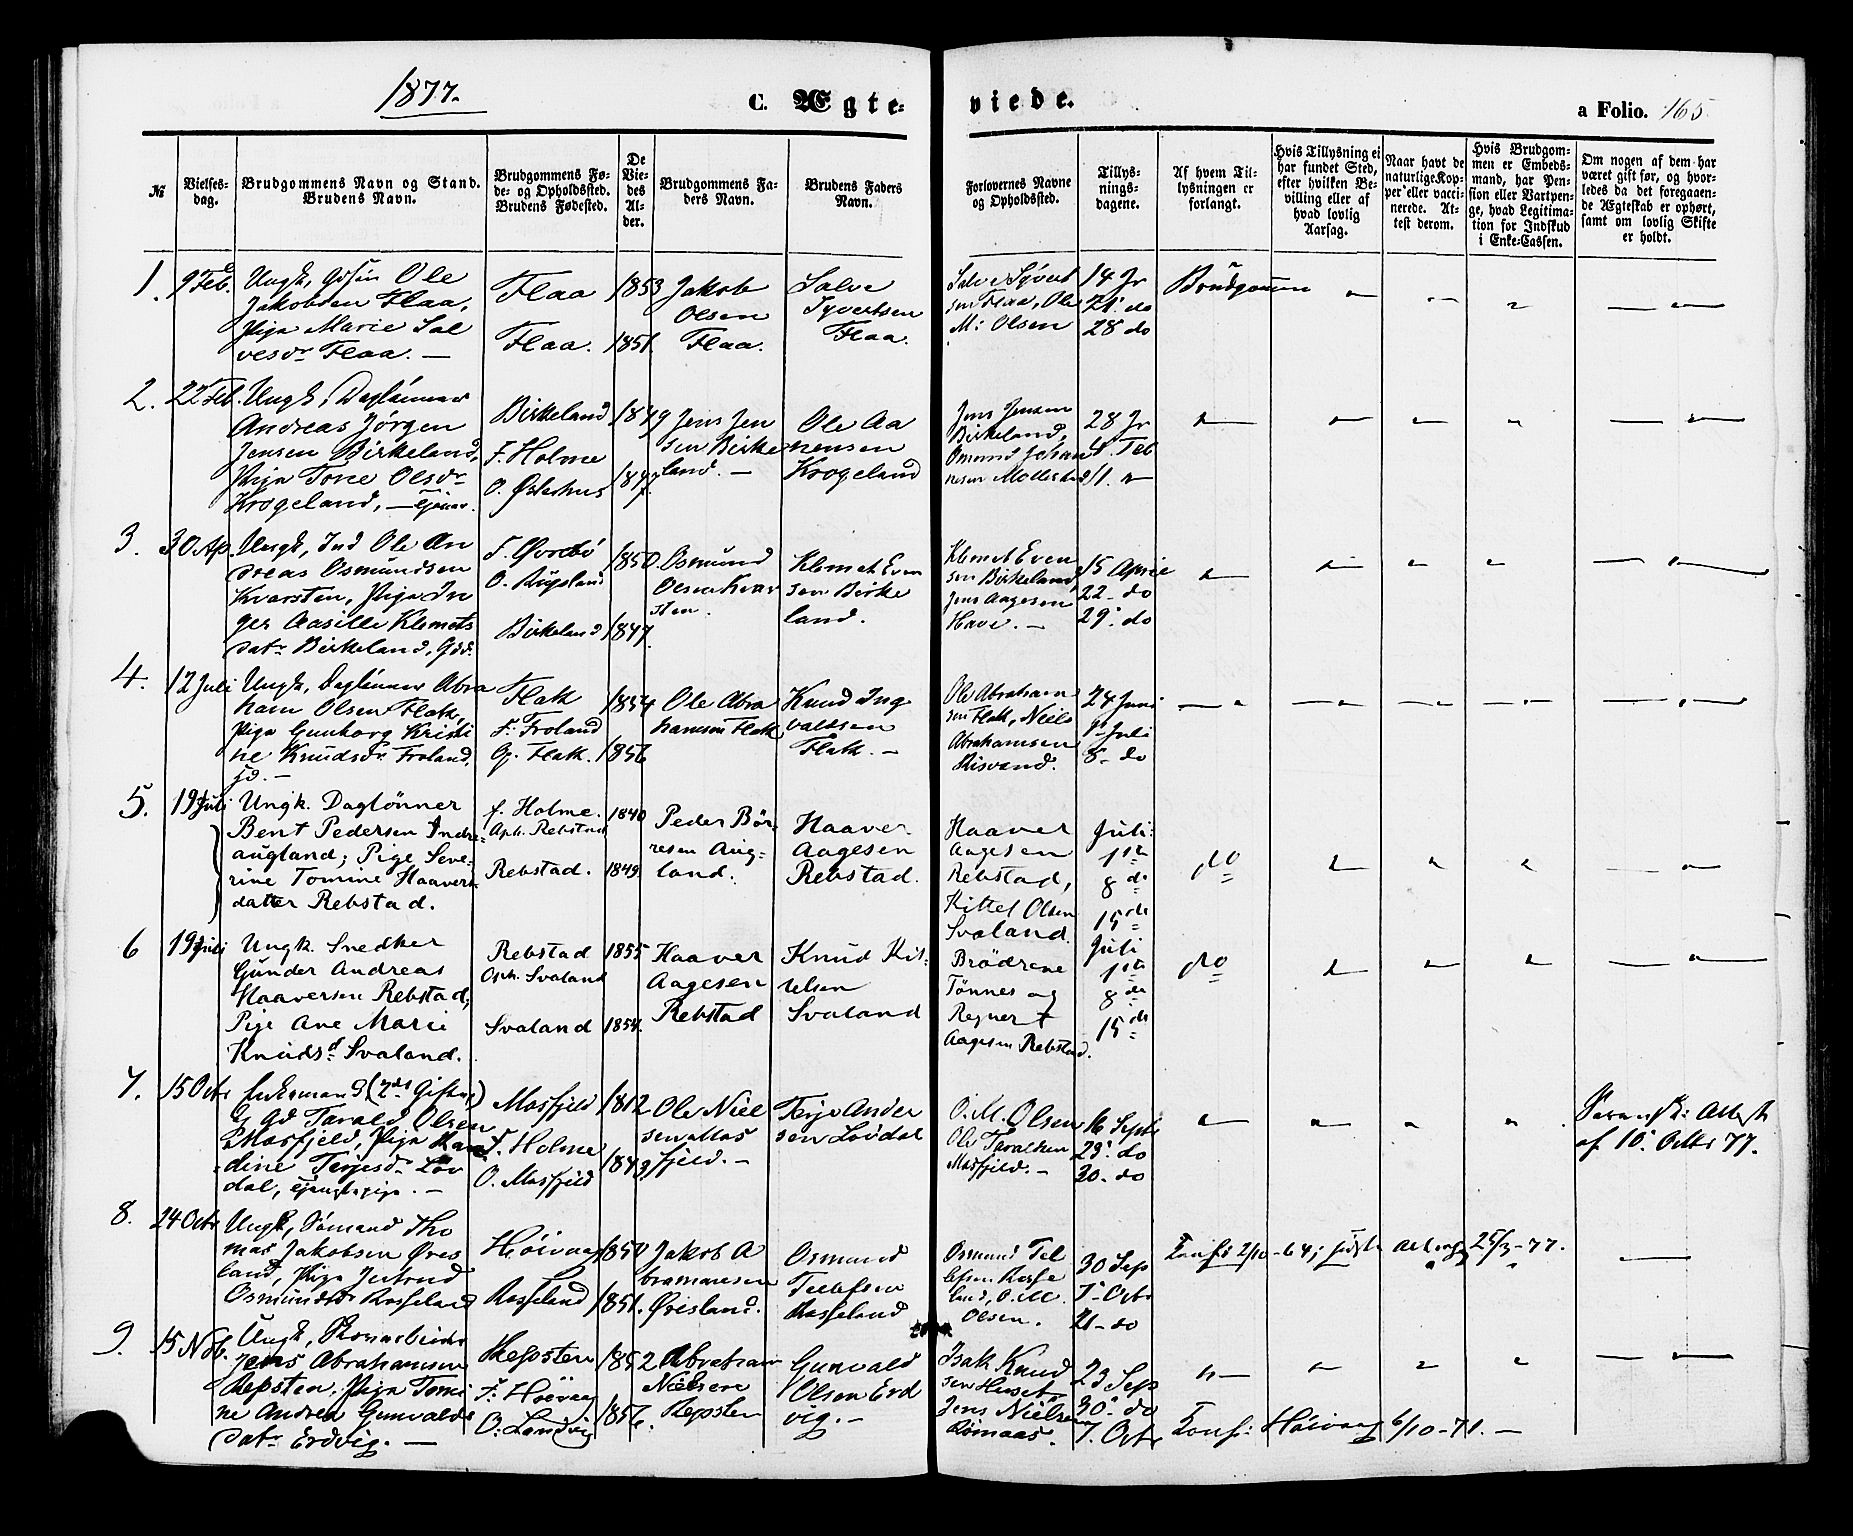 1877.
C. Ægteviede.
a Folio. 165
№
Vielsesdag.
Brudgommens Navn og Stand.
Brudens Navn.
Brudgommens Føde- og Opholdssted.
Brudens Fødested.
De Viedes Alder.
Brudgommens Faders Navn.
Brudens Faders Navn.
Forlovernes Navne og Opholdssted.
Tillysningsdagene.
Af hvem Tillysningen er forlangt.
Hvis Tillysning ei har fundet Sted, efter hvilken Bevilling eller af hvad lovlig Aarsag.
Naar havt de naturlige Kopper eller vaccinerede. Attest derom.
Hvis Brudgommen er Embedsmand, har Pension eller Vartpenge, hvad Legitimation for Indskud i Enke-Cassen.
Om nogen af dem har været gift før, og hvorledes da det foregaaende Ægteskab er ophørt, samt om lovlig Skifte er holdt.
1. 9 Feb. Ungk, Gdsün Ole
Jakobsen Flaa,
Pige Marie Sal
vesdr Flaa. —
Flaa 1853
Flaa. 1851.
Jakob
Olsen
Flaa.
Salve
Syvertsen
Flaa.
Salve Syvert
sen Flaa, Ole
M: Olsen
14 Jr
21. do
28 do
Brudgommen
2. 22 Feb. Ungk, Daglönner
Andreas Jörgen
Jensen Birkeland,
Pige Tone Olsdr
Krogeland,
Birkeland 1849
F. Holme
O. Østerhus 1847.
Jens Jen
sen Birke
land. —
Ole Aa
nensen
Krogeland
Jens Jensen
Birkeland,
Osmund Johan
nesen Mollestad
28 Jr
4. Feb
11. "
3. 30 Ap. Ungk, Ind Ole An
dreas Osmundsen
Kvarsten, Pige In
ger Aasille Klemets
datr Birkeland,
F. Øvrebö 1850.
O. Rugsland
Birkeland 1847.
Osmund
Olsen Kvar
sten.
Klemet Even
sen Birke
land.
Klemet Even
sen Birkeland
Jens Aagesen
Have. —
15 April
22 - do
29. do
4. 12 Juli Ungk, Daglönner Abra
ham Olsen Flak,
Pige Gunborg Kristi
ne Knudsdr Froland,
Flak 1854
F. Froland
Op. Flak. 1856
Ole Abra
hamsen Flak
Knud Ing
valdsen
Flak. —
Ole Abraham
sen Flak, Niels
Abrahamsen
Risvand.
24 Juni
1st Juli
8 - do
5. 19 Juli Ungk. Daglönner
Bent Pedersen Indre-
augland; Pige Seve-
rine Tomine Haavers-
datter Rebstad.
f. Holme. 1840
Oph. Rebstad
Rebstad. 1849.
Peder Bör-
resen Aug-
land.
Haaver
Aagesen
Rebstad.
Haaver
Aagesen
Rebstad,
Kittel Olsen
Svaland.
Juli
1ste
8de
15de
do
6 19 Juli Ungk. Snedker
Gunder Andreas
Haaversen Rebstad,
Pige Ane Marie
Knudsd. Svaland.
Rebstad 1855
Oph. Svaland
Svaland 1854.
Haaver
Aagesen
Rebstad
Knud Kit-
telsen
Svaland
Brödrene
Tønnes og
Regnert
Aagesen Rebstad.
Juli
1ste
8de
15de
do
7. 15 Octr Enkemand (2det Giftm)
Gd Tarald Olsen
Mosfjeld, Pige Karo
dine Terjesdr Löv
dal,
Mosfjeld 1812
F. Holme
O. Mosfjeld 1843
Ole Niel
sen Mos
fjeld. —
Terje Ander
sen Lövdal
O. M. Olsen
Ole Taraldsen
Mosfjeld. —
16 Sept
23. do
30. do
af 10. Octbr 77.
8. 24 Octr Ungk, Sömand Tho
mas Jakobsen Øves
land, Pige Jertrud
Osmundsdr Rosseland
Höivaag 1850
Rosseland 1851.
Jakob A
bramansen
Øvesland.
Osmund
Tellefsen
Rosseland
Osmund Tel
lefsen Rosse
land, O. M.
Olsen.
30 Sep
7. Octr
21 - do
Konf: 2/10 - 64; 25/3 - 77.
9. 15 Nov. Ungk,
Jens Abrahamsen
Repsten, Pige Tomi
ne Andrea Gunvalds
datr Erdvig. —
Repsten 1852
F. Höivaag
O. Landvig 1856.
Abraham
Nielsen
Repsten
Gunvald
Olsen Erd
vig. —
Isak Knud
sen Huset
Jens Nielsen
Römaas.
23 Sep
30. do
7. Octr
Konf: Höivaag 6/10 - 71. —